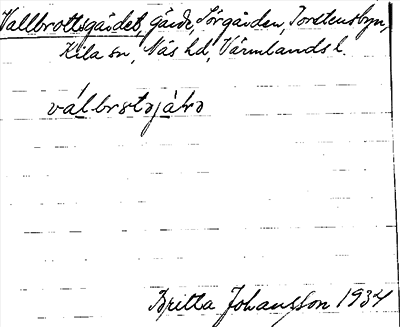 Vallbrottsgärdet, gärde, Sörgården, Torstensbyn,
Kila sn, Näs hd, Värmlands l.
Britta Johansson 1934